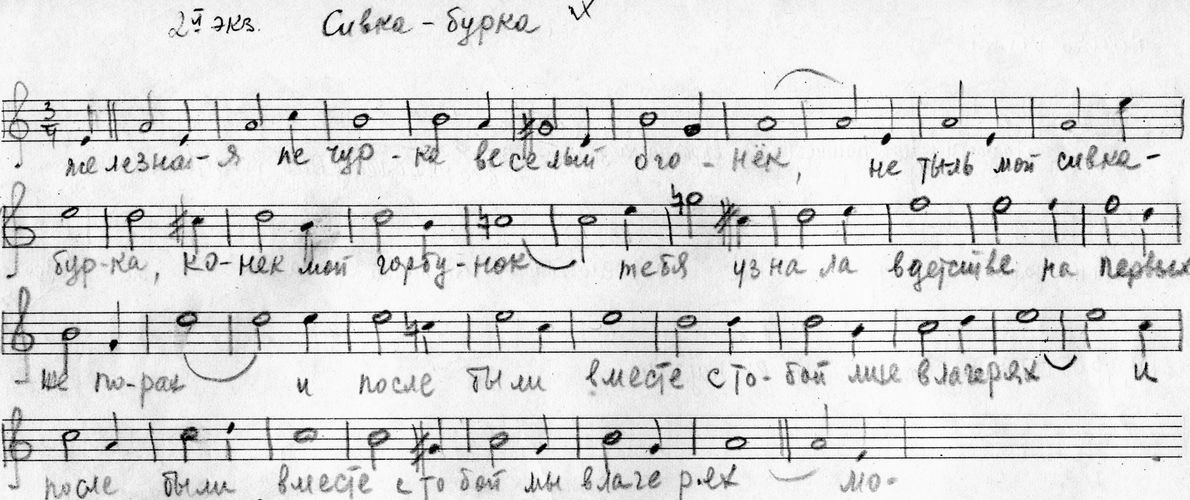 2й экз. Сивка-бурка
3/4
железна-я пе чур-ке веселый ого-нёк, не тыль мой сивка-
бур-ка, ко-нек мой горбу-нок тебя уз на ла в детстве на первых
-же по-рах и после были вместе с то-бой мы в лагерях и
после были вместе с то бой мы в лаге рях мо-